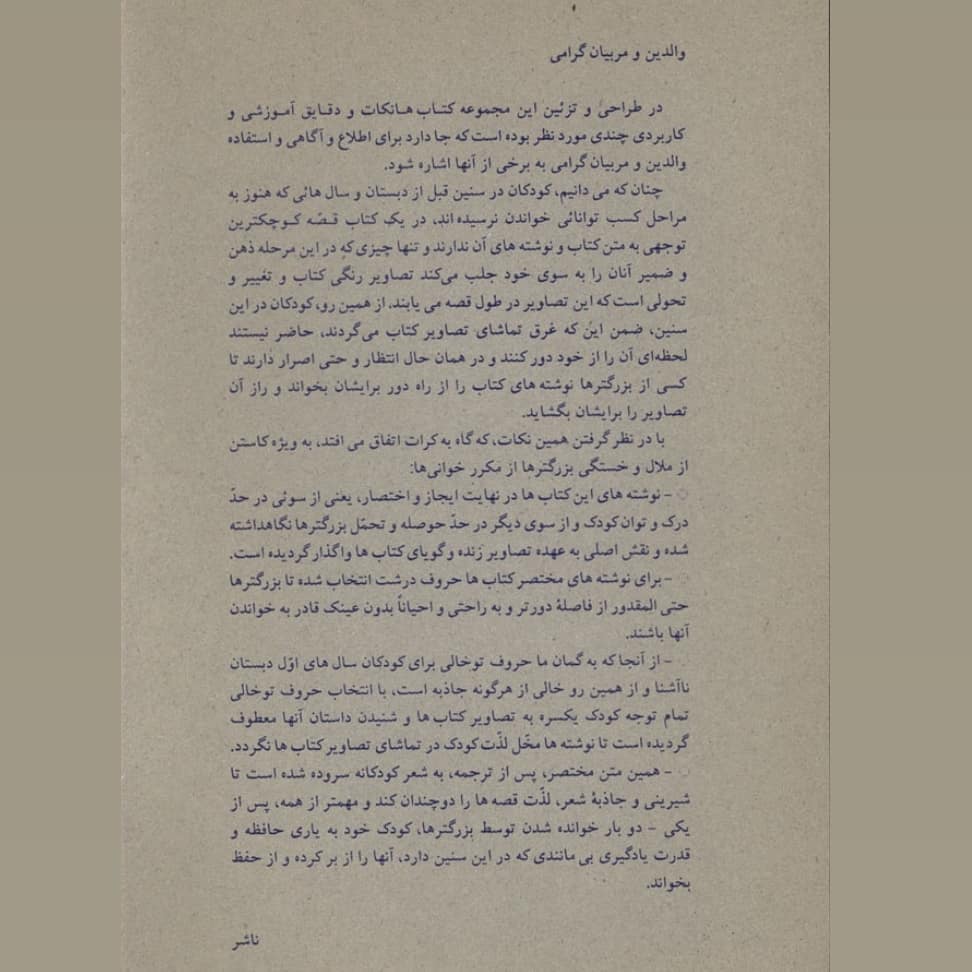 والدین و مربیان گرامی
در طراحی و تزئین این مجموعه کتاب هانکات و دقایق آموزشی و
کاربردی چندی مورد نظر بوده است که جا دارد برای اطلاع و آگاهی و استفاده
والدین و مربیان گرامی به برخی از آنها اشاره شود.
چنان که می دانیم، کودکان در سنین قبل از دبستان و سال هائی که هنوز به
مراحل کسب توانائی خواندن نرسیده اند، در یک کتاب قصّه کوچکترین
توجهی به متن کتاب و نوشته های آن ندارند و تنها چیزی که در این مرحله ذهن
و ضمیر آنان را به سوی خود جلب می‌کند تصاویر رنگی کتاب و تغییر و
تحولی است که این تصاویر در طول قصه می یابند، از همین رو، کودکان در این
سنین، ضمن این که غرق تماشای تصاویر کتاب می‌گردند، حاضر نیستند
لحظه‌ای آن را از خود دور کنند و در همان حال انتظار و حتی اصرار دارند تا
کسی از بزرگترها نوشته های کتاب را از راه دور برایشان بخواند و راز آن
تصاویر را برایشان بگشاید.
با در نظر گرفتن همین نکات، که گاه به کرات اتفاق می افتد، به ویژه کاستن
از ملال و خستگی بزرگترها از مکرر خوانی‌ها:
- نوشته های این کتاب ها در نهایت ایجاز و اختصار، یعنی از سوئی در حدّ
درک و توان کودک و از سوی دیگر در حدّ حوصله و تحمّل بزرگترها نگاهداشته
شده و نقش اصلی به عهده تصاویر زنده و گویای کتاب ها واگذار گردیده است.
- برای نوشته های مختصر کتاب ها حروف درشت انتخاب شده تا بزرگترها
حتی المقدور از فاصلهٔ دورتر و به راحتی و احیاناً بدون عینک قادر به خواندن
آنها باشند.
- از آنجا که به گمان ما حروف توخالی برای کودکان سال های اوّل دبستان
ناآشنا و از همین رو خالی از هرگونه جاذبه است، با انتخاب حروف توخالی
تمام توجه کودک یکسره به تصاویر کتاب ها و شنیدن داستان آنها معطوف
گردیده است تا نوشته ها مخّل لذّت کودک در تماشای تصاویر کتاب ها نگردد.
- همین متن مختصر، پس از ترجمه، به شعر کودکانه سروده شده است تا
شیرینی و جاذبهٔ شعر، لذّت قصه ها را دوچندان کند و مهمتر از همه، پس از
یکی - دو بار خوانده شدن توسط بزرگترها، کودک خود به یاری حافظه و
قدرت یادگیری بی مانندی که در این سنین دارد، آنها را از بر کرده و از حفظ
بخواند.
ناشر